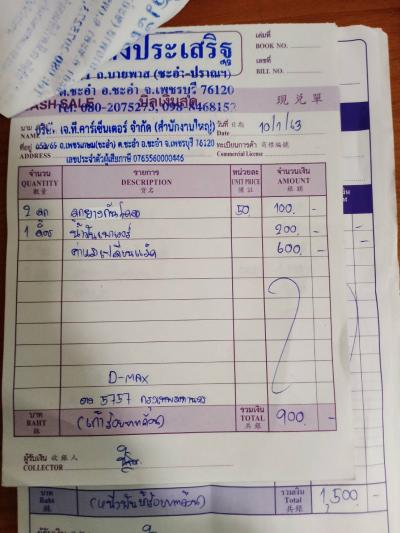 ประเสริฐ
ถ.บายพาส (ชะอำ-ปราณฯ)
ต.ชะอำ อ.ชะอำ จ.เพชรบุรี 76120
Tel. 080-2075273, 098-8468152
เล่มที่
BOOK NO.
เลขที่
BILL NO.
CASH SALE บิลเงินสด 現兌單
นาม NAME บริษัท เจ.ที.คาร์เซ็นเตอร์ จำกัด (สำนักงานใหญ่) วันที่ 日期 Date 10/7/63
ที่อยู่ ADDRESS ถ.เพชรเกษม(ชะอำ) ต.ชะอำ อ.ชะอำ จ.เพชรบุรี 76120 ทะเบียนการค้า 商標編號 Commercial License
เลขประจำตัวผู้เสียภาษี 0765560000446
จำนวน รายการ หน่วยละ จำนวนเงิน
QUANTITY DESCRIPTION UNIT PRICE AMOUNT
數量 貨名 價註 銀額
2 ลูก ลูกยางกันโคลง 50 100 -
1 ลิตร 200 -
600 -
D-MAX
5757 กรุงเทพมหานคร
บาท BAHT 銖 (เก้าร้อยบาทถ้วน) รวมเงิน TOTAL 共銀 900 -
ผู้รับเงิน 收銀人
COLLECTOR
บาท Baht 銖 (หนึ่งพันห้าร้อยบาทถ้วน) รวมเงิน Total 共銀 1,500 -